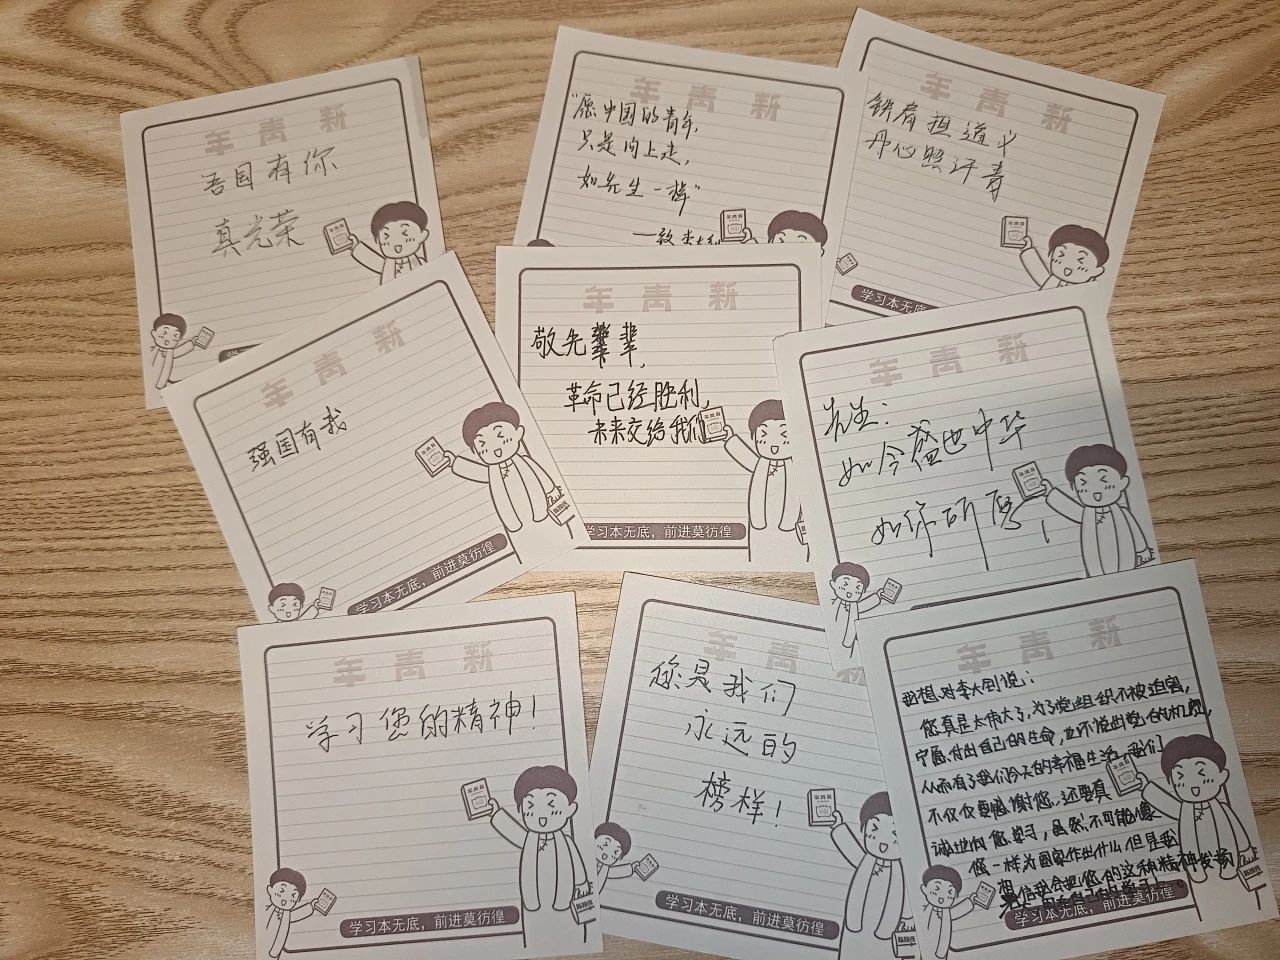 年青新
吾国有你
真光荣
年青新
"愿中国的青年,
只是向上走,
如先生一样"
年青新
铁肩担道义
丹心照汗青
学习本无底
年青新
强国有我
学习本无底，前进莫彷徨
年青新
敬先辈,
革命已经胜利,
未来交给我们
学习本无底，前进莫彷徨
年青新
先生:
如今盛世中华
如你所愿!
年青新
学习您的精神!
学习本无底，前进莫彷徨
年青新
您是我们
永远的
榜样!
学习本无底，前进莫彷徨
年青新
我想对李大钊说:
您真是太伟大了,为了党组织不被迫害,
宁愿付出自己的生命,也不说出党的机密,
从而有了我们今天的幸福生活,我们
不仅仅要感谢您,还要真
诚地向您学习,虽然不可能像
您一样为国家作出什么但是我
相信我会把您的这种精神发扬
学习本无底，前进莫彷徨